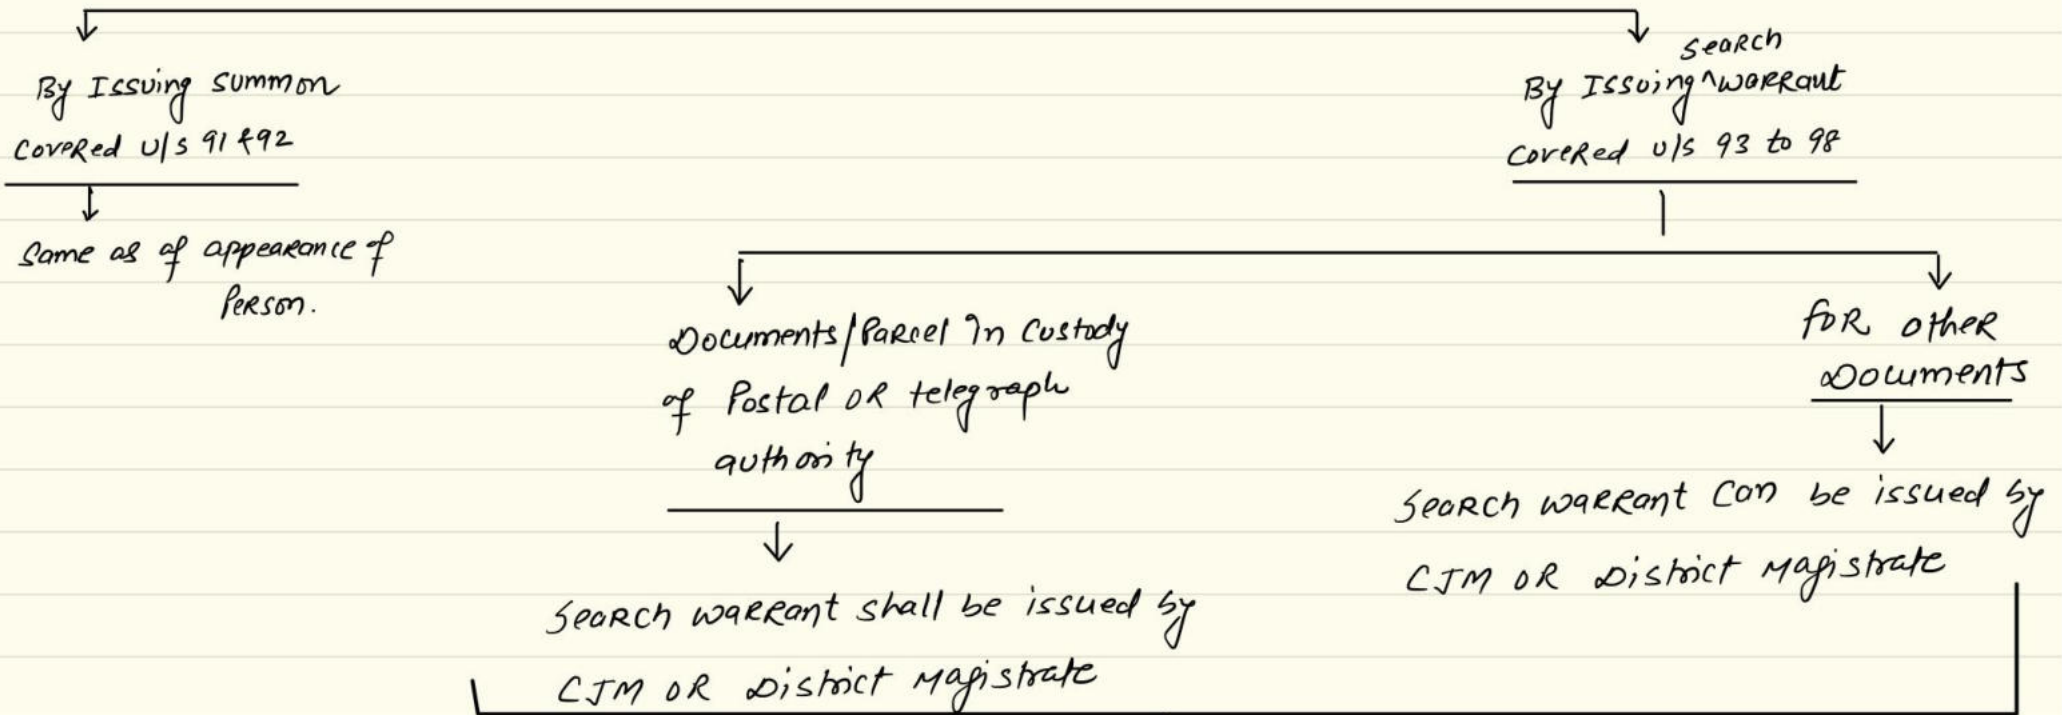 By Issuing summon
covered u/s 91 & 92
Same as of appearance of
Person.
By Issuing ^search warrant
covered u/s 93 to 98
Documents/Parcel in Custody
of Postal or telegraph
authority
Search warrant shall be issued by
CJM or District Magistrate
for other
Documents
Search warrant can be issued by
CJM or District Magistrate